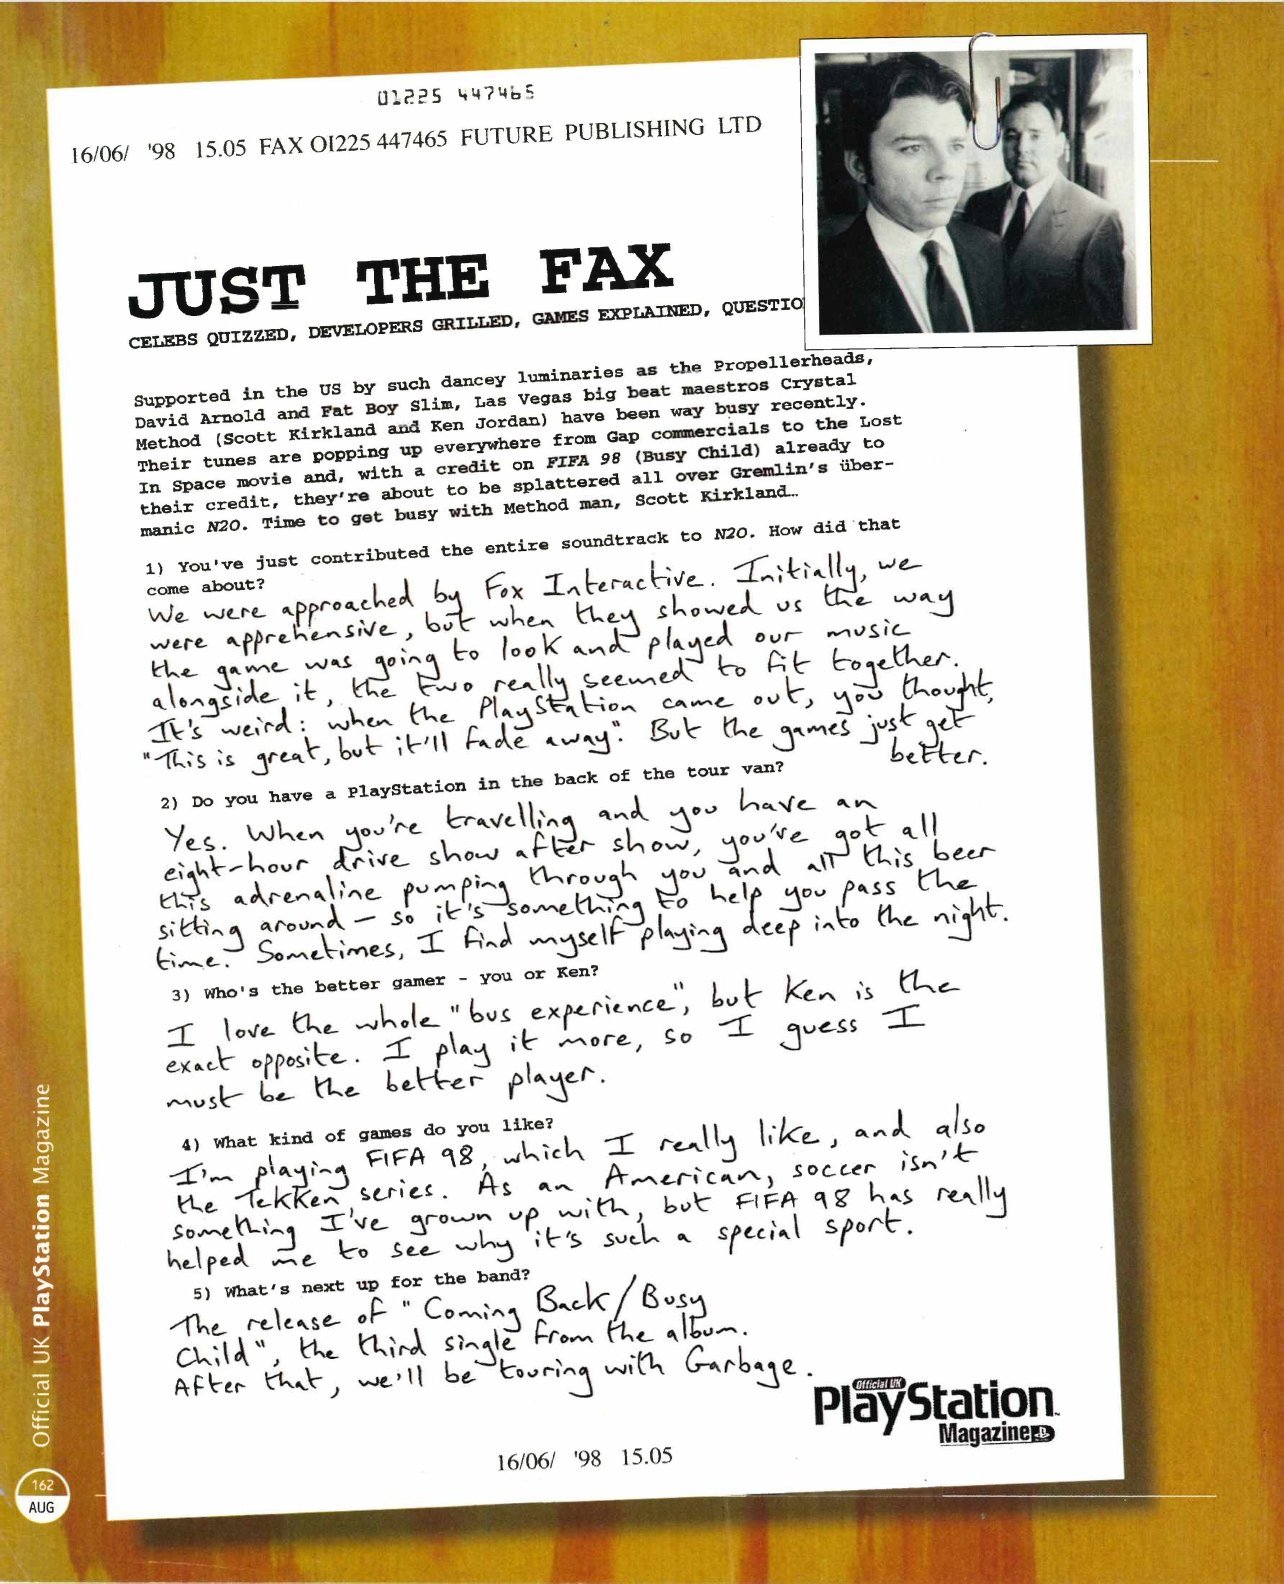 01225 447465
16/06/ '98 15.05 FAX OI225 447465 FUTURE PUBLISHING LTD
JUST THE FAX
CELEBS QUIZZED, DEVELOPERS GRILLED, GAMES EXPLAINED, QUESTIO
Supported in the US by such dancey luminaries as the Propellerheads,
David Arnold and Fat Boy Slim, Las Vegas big beat maestros Crystal
Method (Scott Kirkland and Ken Jordan) have been way busy recently.
Their tunes are popping up everywhere from Gap commercials to the Lost
In Space movie and, with a credit on FIFA 98 (Busy Child) already to
their credit, they're about to be splattered all over Gremlin's über-
manic N2O. Time to get busy with Method man, Scott Kirkland…
1) You've just contributed the entire soundtrack to N2O. How did that
come about?
We were approached by Fox Interactive. Initially, we
were apprehensive, but when they showed us the way
the game was going to look and played our music
alongside it, the two really seemed to fit together.
It's weird: when the PlayStation came out, you thought,
"This is great, but it'll fade away". But the games just get
better.
2) Do you have a PlayStation in the back of the tour van?
Yes. When you're travelling and you have an
eight-hour drive show after show, you've got all
this adrenaline pumping through you and all this beer
sitting around – so it's something to help you pass the
time. Sometimes, I find myself playing deep into the night.
3) Who's the better gamer - you or Ken?
I love the whole "bus experience", but Ken is the
exact opposite. I play it more, so I guess I
must be the better player.
4) What kind of games do you like?
I'm playing FIFA 98, which I really like, and also
the Tekken series. As an American, soccer isn't
something I've grown up with, but FIFA 98 has really
helped me to see why it's such a special sport.
5) What's next up for the band?
The release of "Coming Back/Busy
Child", the third single from the album.
After that, we'll be touring with Garbage.
Official UK
PlayStation
Magazine
16/06/ '98 15.05
Official UK PlayStation Magazine
162
AUG